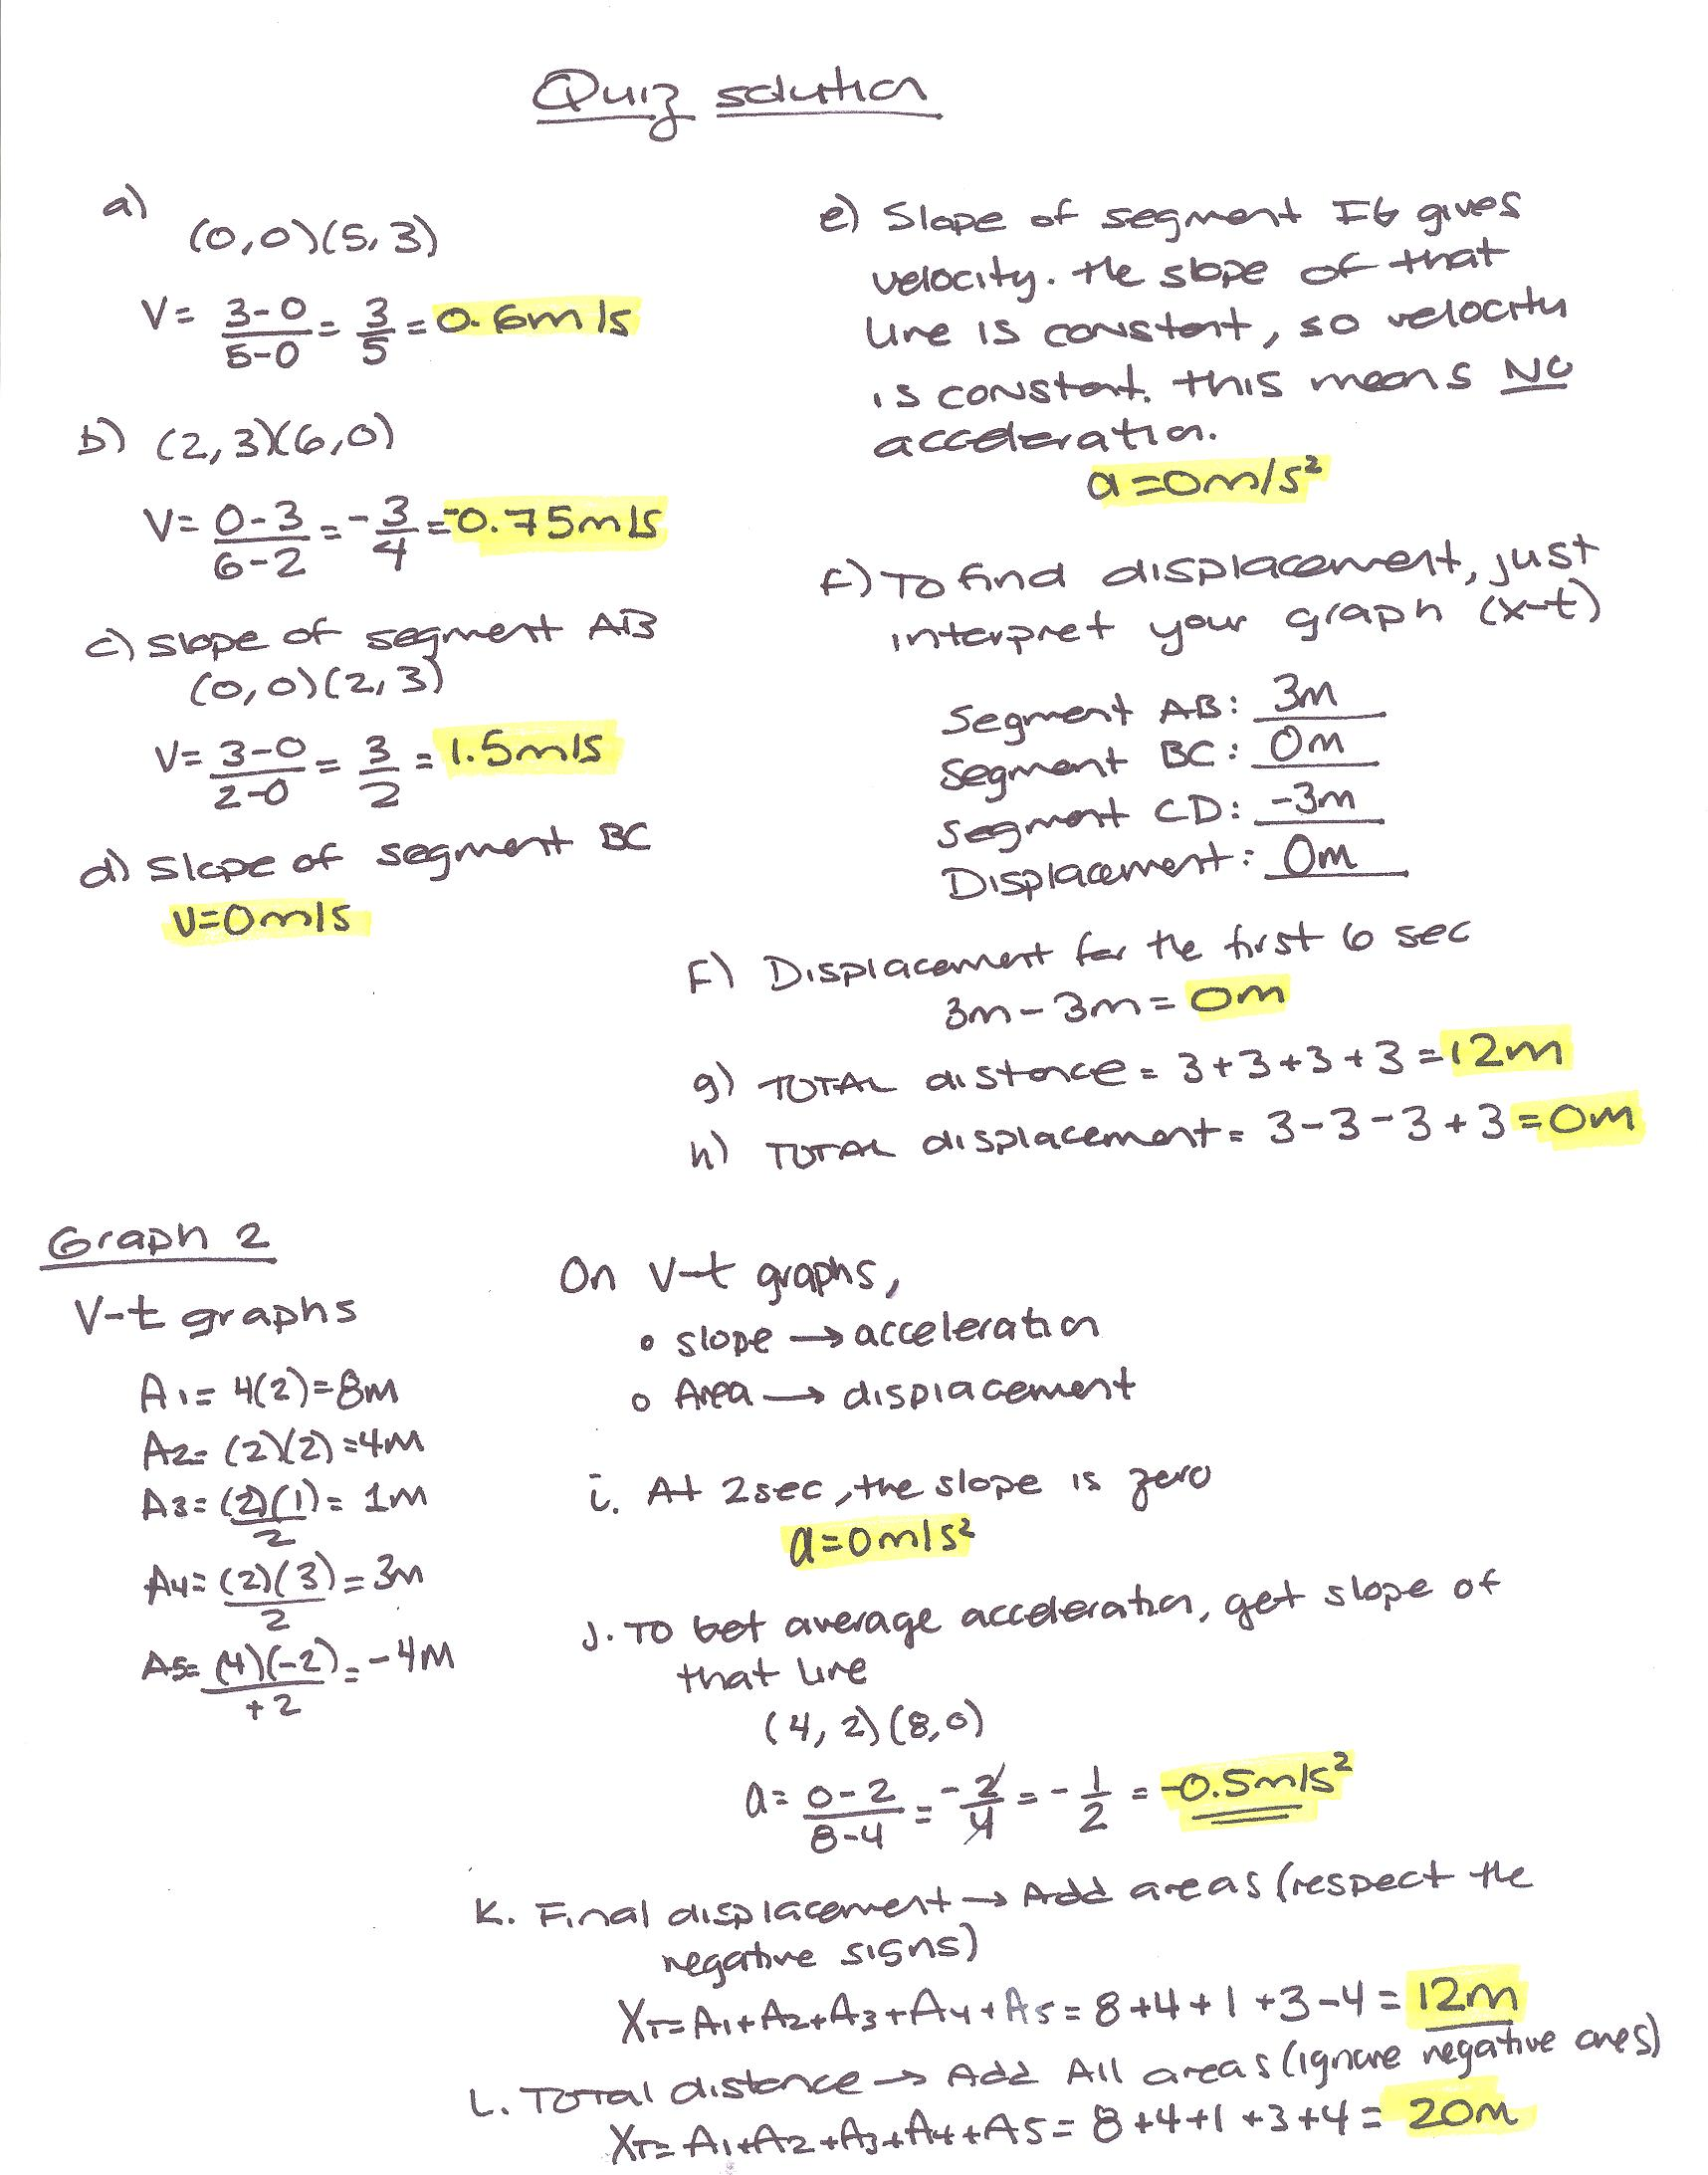 Quiz solution
a)
(0,0)(5,3)
V= 3-0/5-0 = 3/5 = 0.6m/s
b) (2,3)(6,0)
V= 0-3/6-2 = -3/4 = -0.75m/s
c) slope of segment AB
(0,0)(2,3)
V= 3-0/2-0 = 3/2 = 1.5m/s
d) slope of segment BC
V=0m/s
e) Slope of segment IG gives
velocity. the slope of that
line is constant, so velocity
is constant. this means NO
acceleration.
a=0m/s²
f) To find displacement, just
interpret your graph (x-t)
Segment AB: 3m
Segment BC: 0m
Segment CD: -3m
Displacement: 0m
F) Displacement for the first 6 sec
3m-3m=0m
g) TOTAL distance = 3+3+3+3=12m
h) TOTAL displacement= 3-3-3+3=0m
Graph 2
V-t graphs
A1= 4(2)=8m
A2= (2)(2)=4m
A3= (2)(1)/2 = 1m
A4= (2)(3)/2 = 3m
A5= (4)(-2)/+2 = -4m
On V-t graphs,
• slope → acceleration
• Area → displacement
i. At 2sec, the slope is zero
a=0m/s²
J. To get average acceleration, get slope of
that line
(4,2)(8,0)
a= 0-2/8-4 = -2/4 = -1/2 = -0.5m/s²
K. Final displacement → Add areas (respect the
negative signs)
XT=A1+A2+A3+A4+A5= 8+4+1+3-4= 12m
L. Total distance → Add All areas (ignore negative ones)
XT= A1+A2+A3+A4+A5= 8+4+1+3+4= 20m